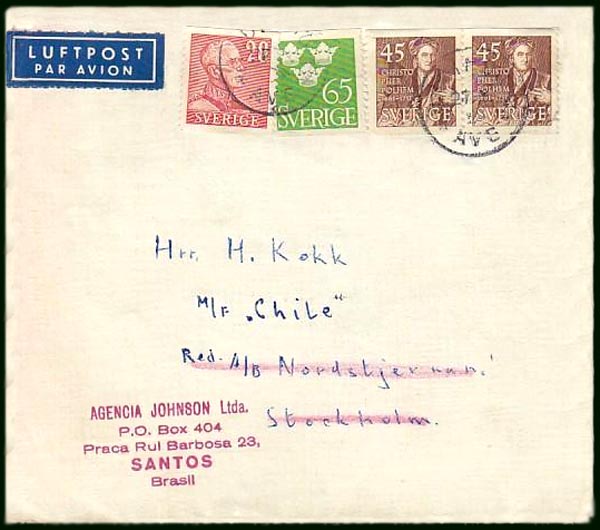 LUFTPOST
PAR AVION
20
SVERIGE
65
SVERIGE
45
CHRISTO
PHER
POLHEM
SVERIGE
45
CHRISTO
PHER
POLHEM
SVERIGE
Hrr. H. Kokk
M/r „Chile"
Red. A/B Nordstjernan.
Stockholm.
AGENCIA JOHNSON Ltda.
P.O. Box 404
Praca Rui Barbosa 23,
SANTOS
Brasil